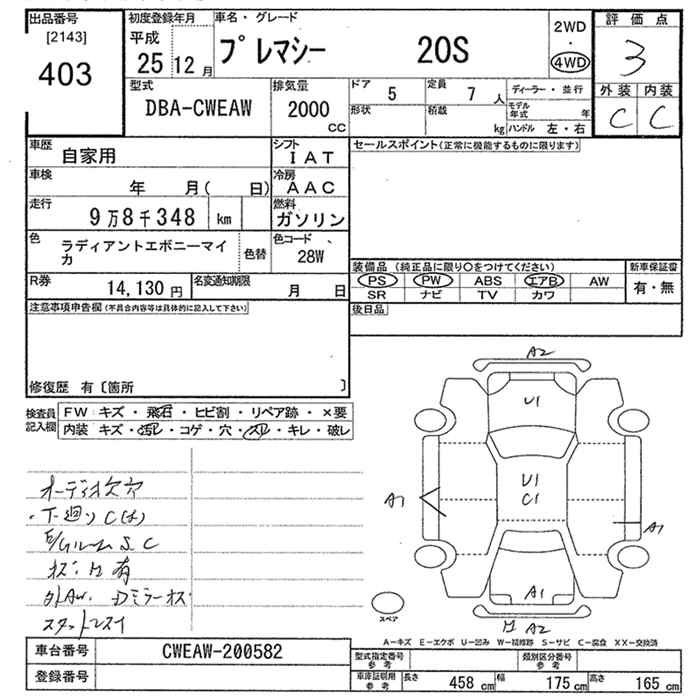 出品番号
[2143]
403
初度登録年月
平成
25 12 月
車名・グレード
プレマシー 20S
2WD
・
4WD
評価点
3
外装 内装
C C
型式
DBA-CWEAW
排気量
2000
CC
ドア 5
定員 7 人
形状
積載 kg
ディーラー・並行
モデル年式 年
ハンドル 左・右
車歴
自家用
シフト
IAT
車検
年 月( 日)
冷房
AAC
走行
9万8千348 km
燃料
ガソリン
色
ラディアントエボニーマイカ
色替
色コード
28W
R券
14,130 円
名変通知期限
月 日
セールスポイント(正常に機能するものに限ります)
装備品 (純正品に限り○をつけてください)
PS PW ABS エアB AW
SR ナビ TV カワ
新車保証書
有・無
後日品
注意事項申告欄(不具合内容等は具体的に記入して下さい)
修復歴 有〔箇所 〕
検査員
記入欄
FW キズ・飛石・ヒビ割・リペア跡・×要
内装 キズ・汚レ・コゲ・穴・スレ・キレ・破レ
オーディオ欠品
下廻り C
S C
有
外AW. Dミラーキズ
A2
U1
U1
C1
A1
A1
A1
A2
スペア
A-キズ E-エクボ U-凹み W-補修跡 S-サビ C-腐食 XX-交換済
車台番号 CWEAW-200582
登録番号
型式指定番号
参考
類別区分番号
参考
車庫証明用
参考
長さ 458 cm 幅 175 cm 高さ 165 cm